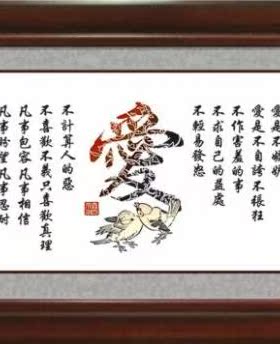 愛是不嫉妒
愛是不自誇不張狂
不作害羞的事
不求自己的益處
不輕易發怒
愛
不計算人的惡
不喜歡不義只喜歡真理
凡事包容凡事相信
凡事盼望凡事忍耐